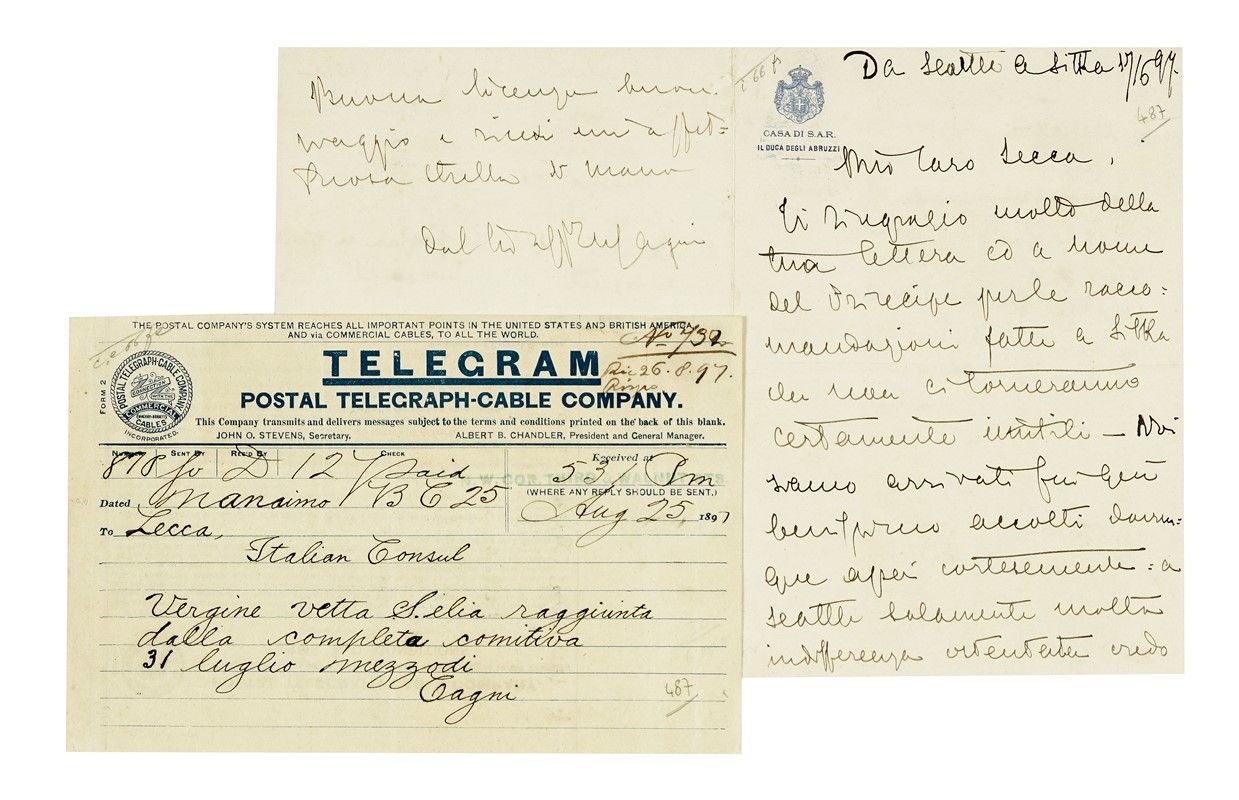 Buona licenza buon
viaggio e ricevi un'affet=
tuosa stretta di mano
Dal tuo aff Cagni
CASA DI S.A.R.
IL DUCA DEGLI ABRUZZI
Da Seattle a Sitka 17/6 97.
487
Mio Caro Lecca,
Ti ringrazio molto della
tua lettera ed a nome
del Principe per le racco=
mandazioni fatte a Sitka
che non ci torneranno
certamente inutili — Noi
siamo arrivati fin qui
benissimo accolti dovun=
que assai cortesemente: a
Seattle solamente molta
indifferenza ostentata credo
THE POSTAL COMPANY'S SYSTEM REACHES ALL IMPORTANT POINTS IN THE UNITED STATES AND BRITISH AMERICA,
AND via COMMERCIAL CABLES, TO ALL THE WORLD.
No 732
TELEGRAM
Ric 26.8.97.
POSTAL TELEGRAPH-CABLE COMPANY.
FORM 2
POSTAL TELEGRAPH-CABLE COMPANY
COMMERCIAL
CABLES
INCORPORATED.
This Company transmits and delivers messages subject to the terms and conditions printed on the back of this blank.
JOHN O. STEVENS, Secretary. ALBERT B. CHANDLER, President and General Manager.
NUMBER SENT BY REC'D BY CHECK
878 Jo D 12 Paid
Received at
53 Pm
(WHERE ANY REPLY SHOULD BE SENT.)
Dated Nanaimo B C 25
Aug 25, 1897
To Lecca,
Italian Consul
Vergine vetta S.elia raggiunta
dalla completa comitiva
31 luglio mezzodi
Cagni
487